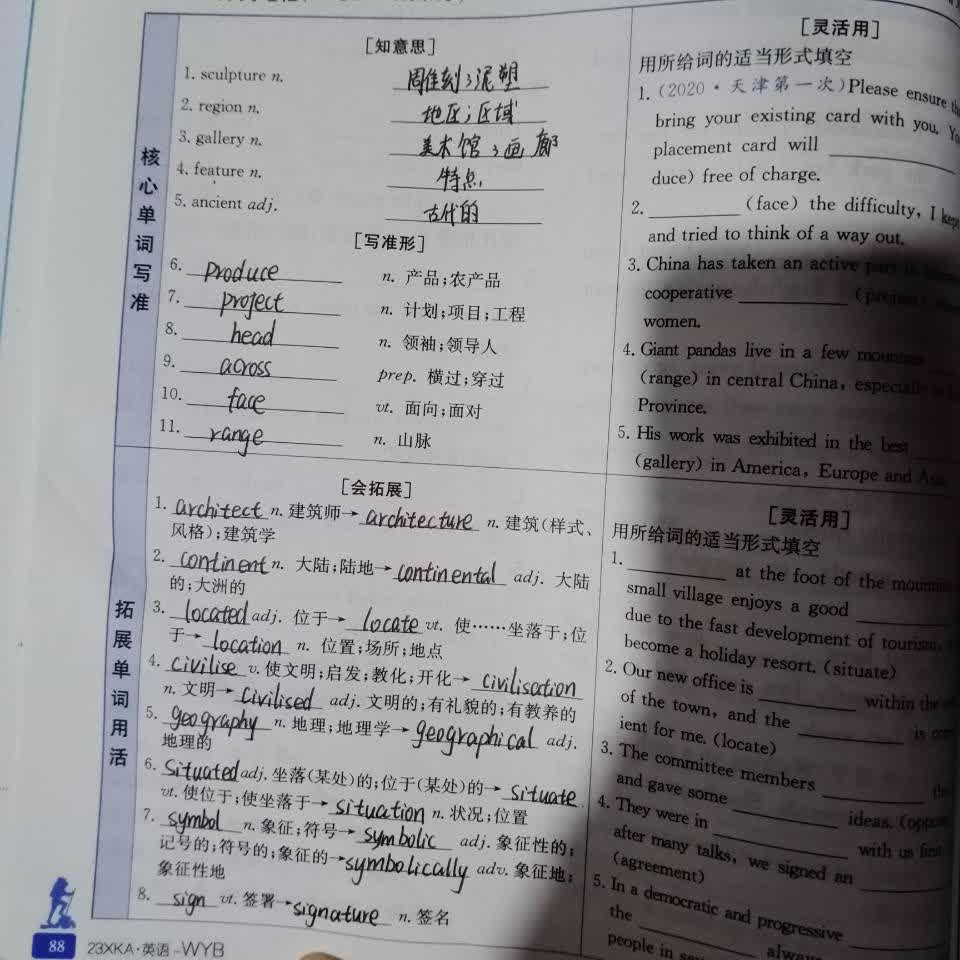 [知意思]
1. sculpture n. 雕刻;泥塑
2. region n. 地区;区域
3. gallery n. 美术馆;画廊
4. feature n. 特点
5. ancient adj. 古代的
[写准形]
6. produce n. 产品;农产品
7. project n. 计划;项目;工程
8. head n. 领袖;领导人
9. across prep. 横过;穿过
10. face vt. 面向;面对
11. range n. 山脉
核心单词写准
[灵活用]
用所给词的适当形式填空
1. (2020·天津第一次)Please ensure
bring your existing card with you.
placement card will ____
duce) free of charge.
2. ____ (face) the difficulty, I kept
and tried to think of a way out.
3. China has taken an active part
cooperative ____
women.
4. Giant pandas live in a few
(range) in central China, especially
Province.
5. His work was exhibited in the best ____
(gallery) in America, Europe and
[会拓展]
1. architect n. 建筑师→architecture n. 建筑(样式、
风格);建筑学
2. continent n. 大陆;陆地→continental adj. 大陆
的;大洲的
3. located adj. 位于→locate vt. 使……坐落于;位
于→location n. 位置;场所;地点
4. civilise v. 使文明;启发;教化;开化→civilisation
n. 文明→civilised adj. 文明的;有礼貌的;有教养的
5. geography n. 地理;地理学→geographical adj.
地理的
6. situated adj. 坐落(某处)的;位于(某处)的→situate
vt. 使位于;使坐落于→situation n. 状况;位置
7. symbol n. 象征;符号→symbolic adj. 象征性的;
记号的;符号的;象征的→symbolically adv. 象征地;
象征性地
8. sign vt. 签署→signature n. 签名
拓展单词用活
[灵活用]
用所给词的适当形式填空
1. ____ at the foot of the
small village enjoys a good ____
due to the fast development of tourism,
become a holiday resort. (situate)
2. Our new office is ____ within the
of the town, and the ____ is
ient for me. (locate)
3. The committee members ____
and gave some ____ ideas.
4. They were in ____ with us
after many talks, we signed an ____
(agreement)
5. In a democratic and progressive ____
the ____ always
people in
88 23XKA·英语-WYB